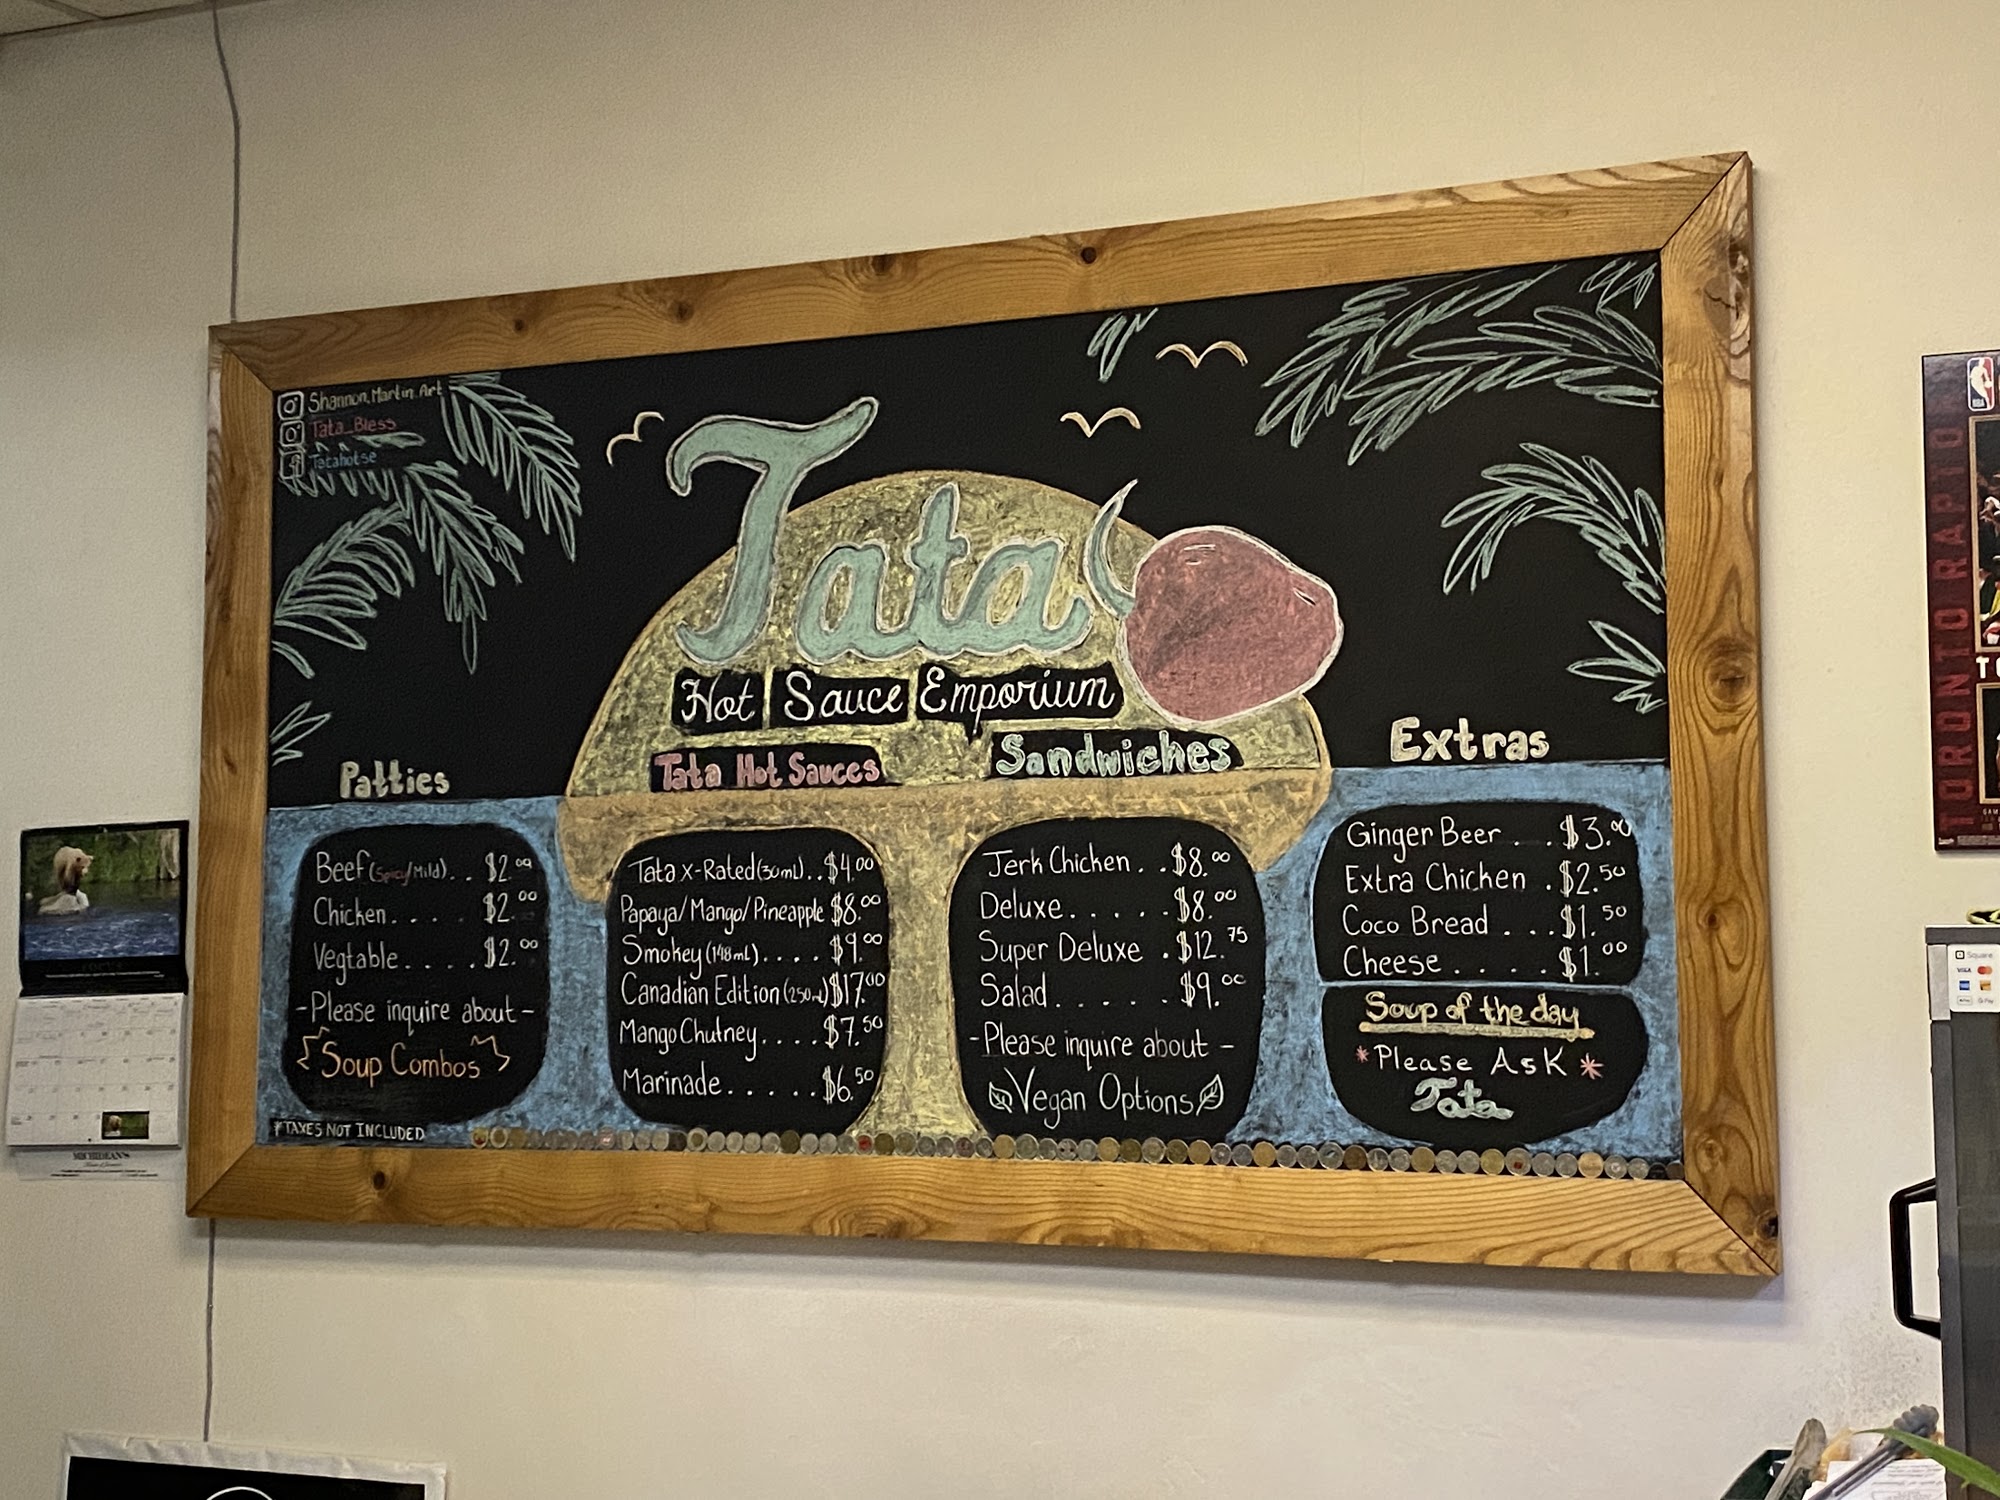 Shannon.Martin.Art
Tata_Bless
Tatahotse
Tata
Hot Sauce Emporium
Patties
Beef (Spicy/Mild) . . $2.00
Chicken . . . . $2.00
Vegtable . . . . $2.00
-Please inquire about-
Soup Combos
*TAXES NOT INCLUDED
Tata Hot Sauces
Tata X-Rated (30mL) . . $4.00
Papaya/Mango/Pineapple $8.00
Smokey (148mL) . . . . $9.00
Canadian Edition (250mL) $17.00
Mango Chutney . . . . $7.50
Marinade . . . . . $6.50
Sandwiches
Jerk Chicken . . $8.00
Deluxe . . . . . $8.00
Super Deluxe . $12.75
Salad . . . . . $9.00
-Please inquire about-
Vegan Options
Extras
Ginger Beer . . . $3.00
Extra Chicken . $2.50
Coco Bread . . . $1.50
Cheese . . . . . $1.00
Soup of the day
*Please Ask*
Tata
TORONTO RAPTO
NBA
Square
VISA